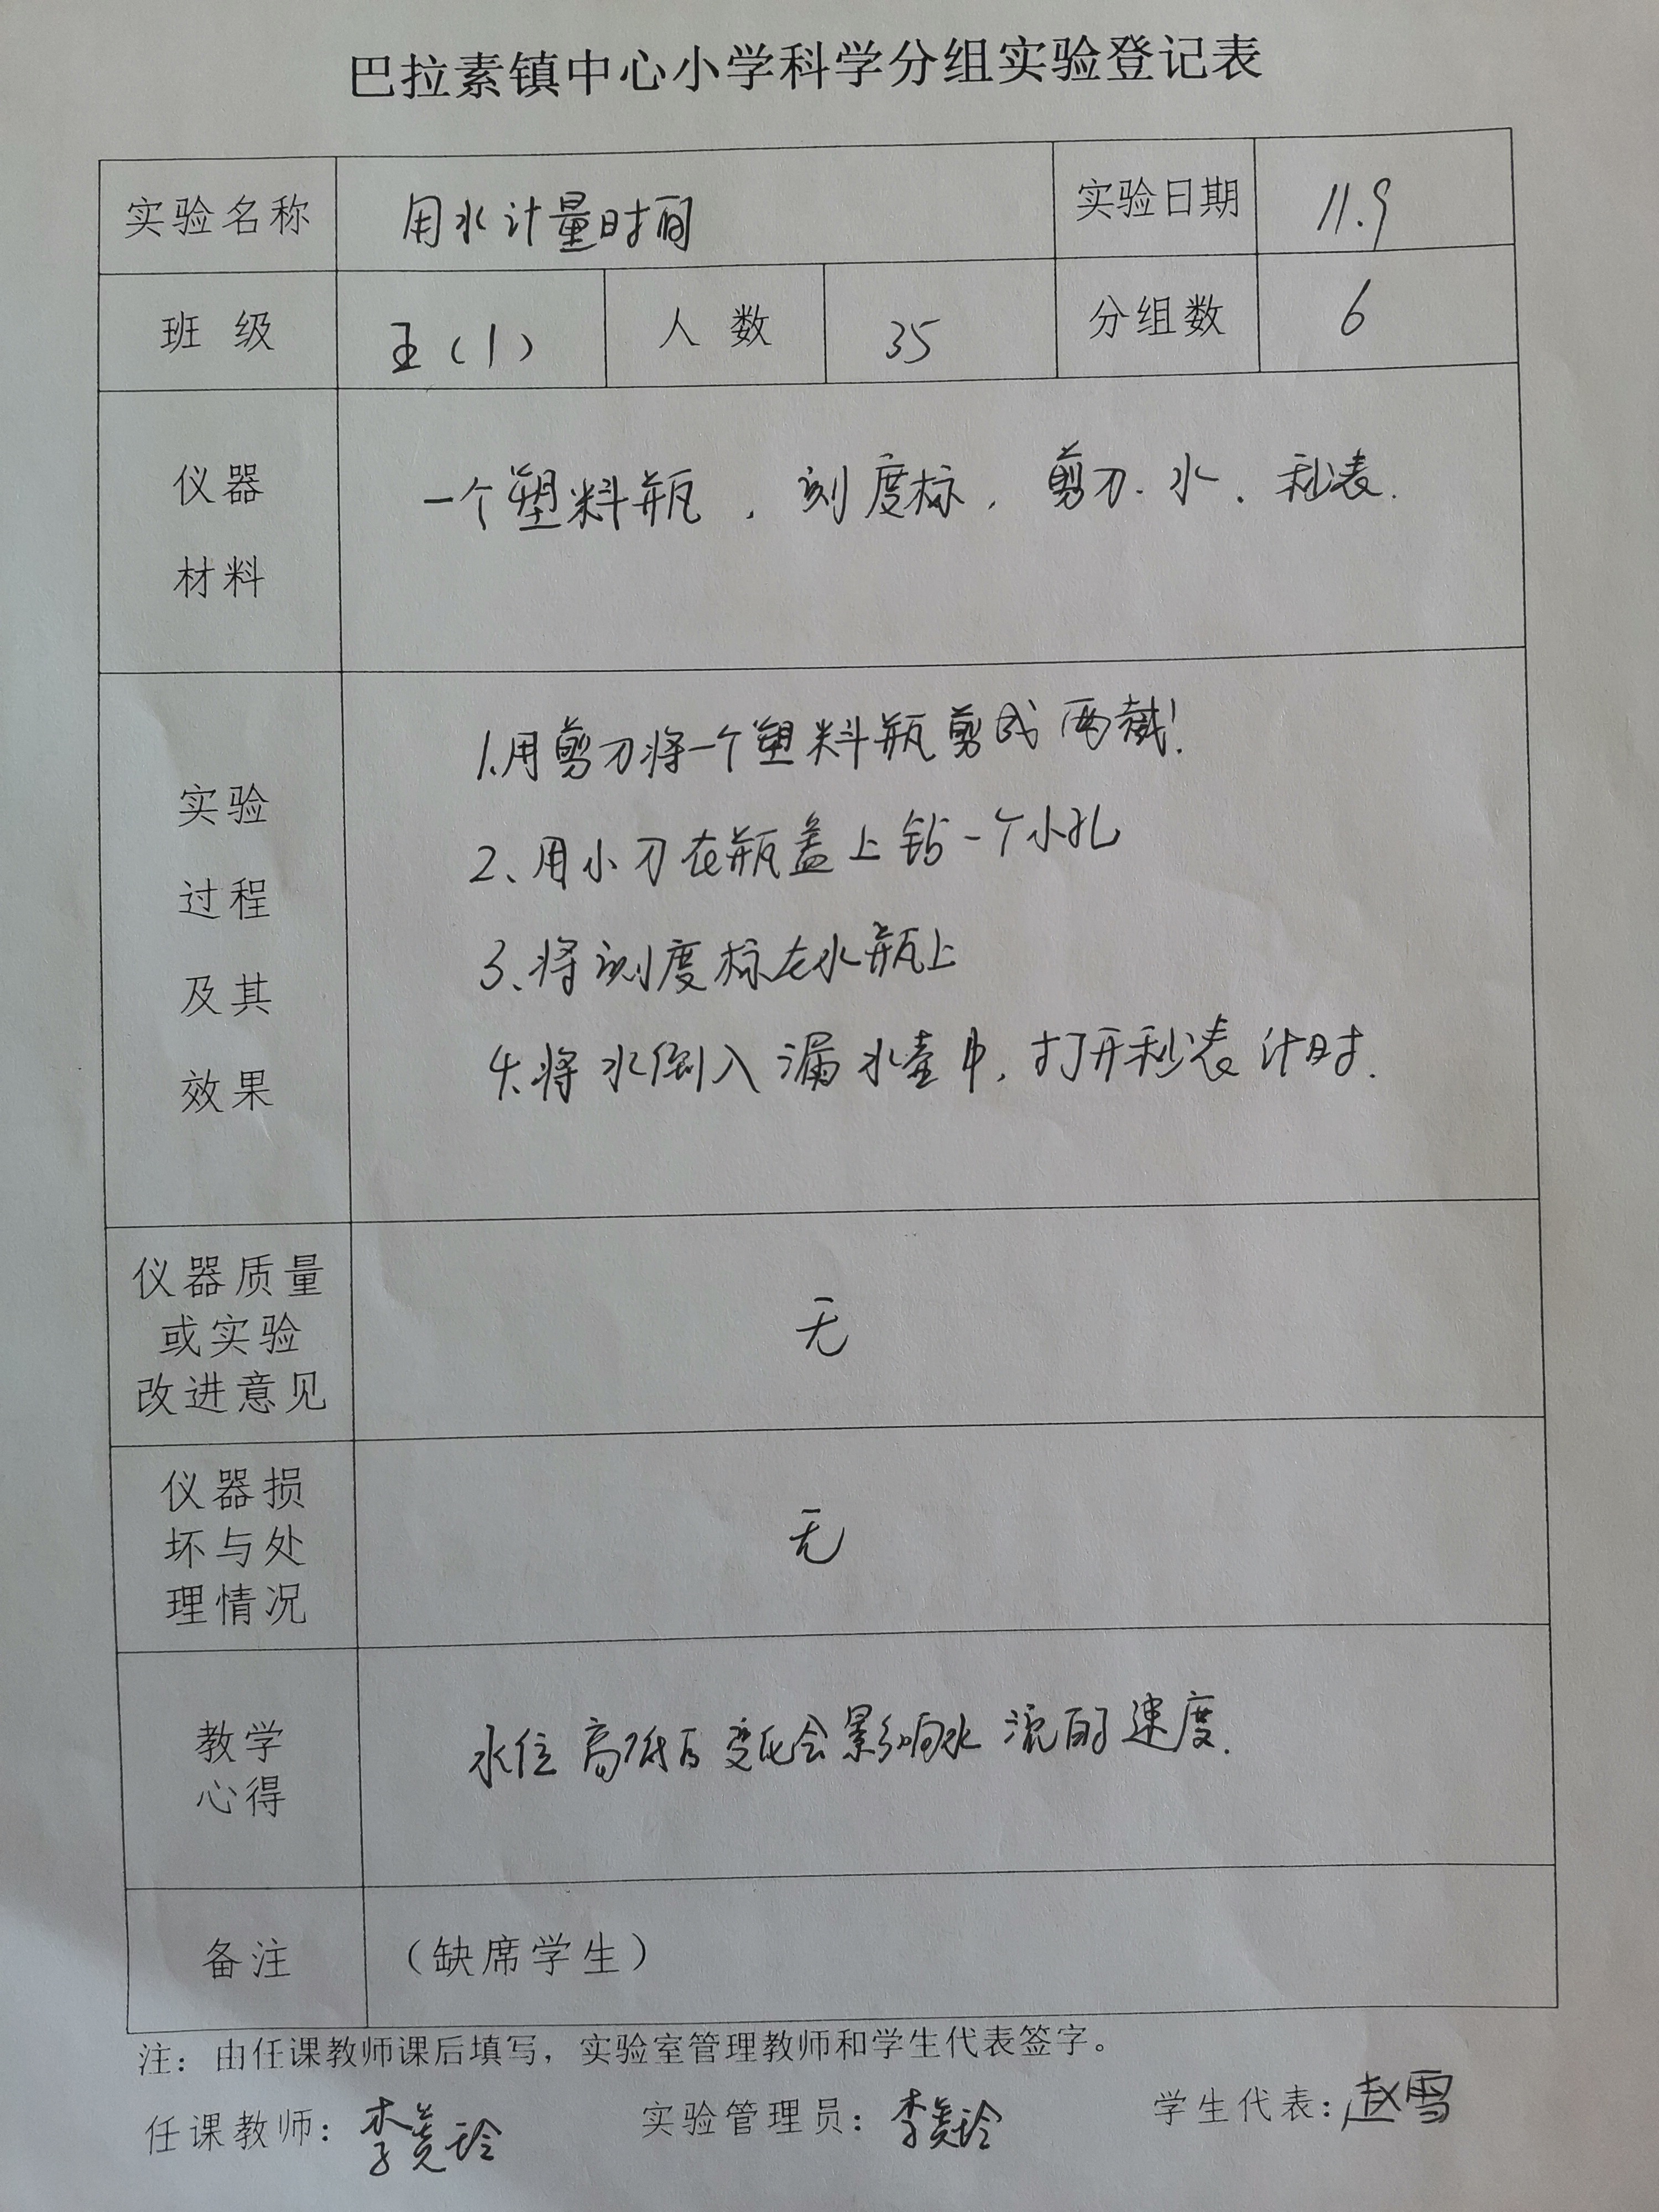 巴拉素镇中心小学科学分组实验登记表
实验名称 用水计量时间 实验日期 11.9
班 级 五(1) 人 数 35 分组数 6
仪器
材料
一个塑料瓶,刻度标,剪刀、水、秒表.
实验
过程
及其
效果
1.用剪刀将一个塑料瓶剪成两截!
2、用小刀在瓶盖上钻一个小孔
3、将刻度标在水瓶上
4.将水倒入漏水壶中,打开秒表计时.
仪器质量
或实验
改进意见
无
仪器损
坏与处
理情况
无
教学
心得
水位高低的变化会影响水流的速度.
备注 (缺席学生)
注:由任课教师课后填写,实验室管理教师和学生代表签字。
任课教师: 李 玲 实验管理员: 李 玲 学生代表: 赵雪